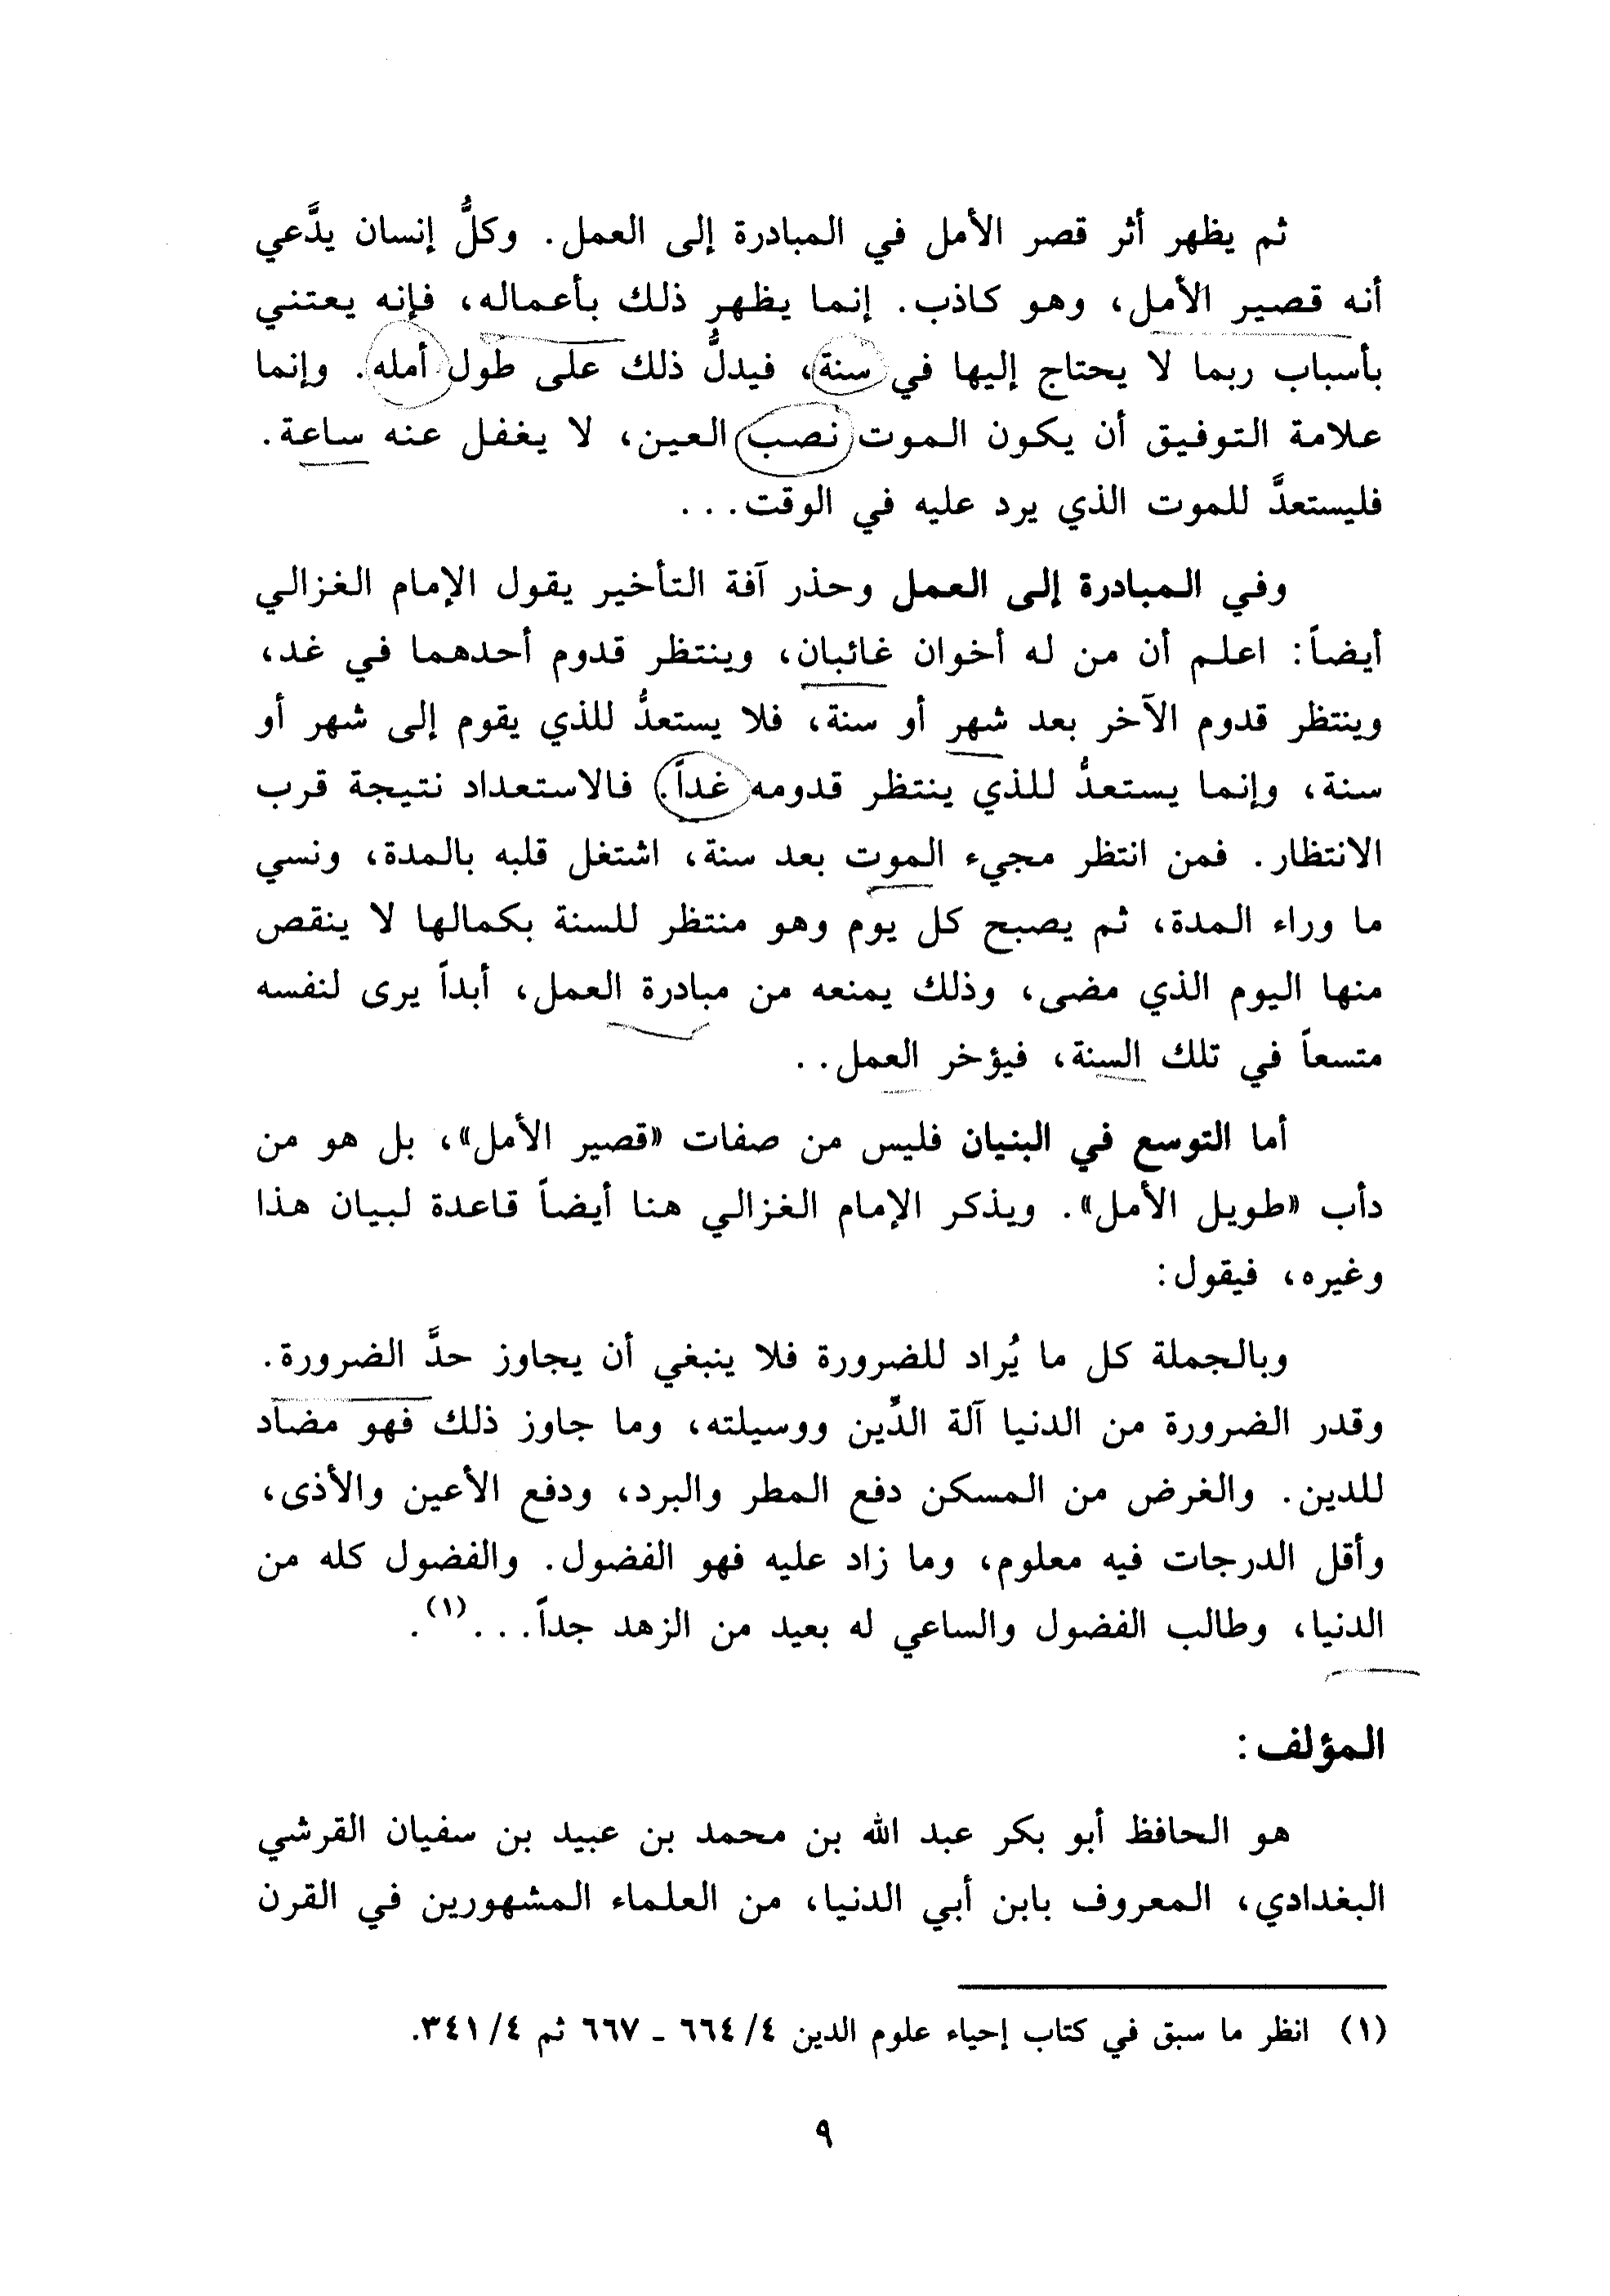 ثم يظهر أثر قصر الأمل في المبادرة إلى العمل. وكلُّ إنسان يدَّعي
أنه قصير الأمل، وهو كاذب. إنما يظهر ذلك بأعماله، فإنه يعتني
بأسباب ربما لا يحتاج إليها في سنة، فيدلُّ ذلك على طول أمله. وإنما
علامة التوفيق أن يكون الموت نصب العين، لا يغفل عنه ساعة.
فليستعدَّ للموت الذي يرد عليه في الوقت...
وفي المبادرة إلى العمل وحذر آفة التأخير يقول الإمام الغزالي
أيضاً: اعلم أن من له أخوان غائبان، وينتظر قدوم أحدهما في غد،
وينتظر قدوم الآخر بعد شهر أو سنة، فلا يستعدُّ للذي يقوم إلى شهر أو
سنة، وإنما يستعدُّ للذي ينتظر قدومه غداً. فالاستعداد نتيجة قرب
الانتظار. فمن انتظر مجيء الموت بعد سنة، اشتغل قلبه بالمدة، ونسي
ما وراء المدة، ثم يصبح كل يوم وهو منتظر للسنة بكمالها لا ينقص
منها اليوم الذي مضى، وذلك يمنعه من مبادرة العمل، أبداً يرى لنفسه
متسعاً في تلك السنة، فيؤخر العمل..
أما التوسع في البنيان فليس من صفات «قصير الأمل»، بل هو من
دأب «طويل الأمل». ويذكر الإمام الغزالي هنا أيضاً قاعدة لبيان هذا
وغيره، فيقول:
وبالجملة كل ما يُراد للضرورة فلا ينبغي أن يجاوز حدَّ الضرورة.
وقدر الضرورة من الدنيا آلة الدِّين ووسيلته، وما جاوز ذلك فهو مضاد
للدين. والغرض من المسكن دفع المطر والبرد، ودفع الأعين والأذى،
وأقل الدرجات فيه معلوم، وما زاد عليه فهو الفضول. والفضول كله من
الدنيا، وطالب الفضول والساعي له بعيد من الزهد جداً...(١).
المؤلف:
هو الحافظ أبو بكر عبد الله بن محمد بن عبيد بن سفيان القرشي
البغدادي، المعروف بابن أبي الدنيا، من العلماء المشهورين في القرن
(١) انظر ما سبق في كتاب إحياء علوم الدين ٤/ ٦٦٤ - ٦٦٧ ثم ٤/ ٣٤١.
٩